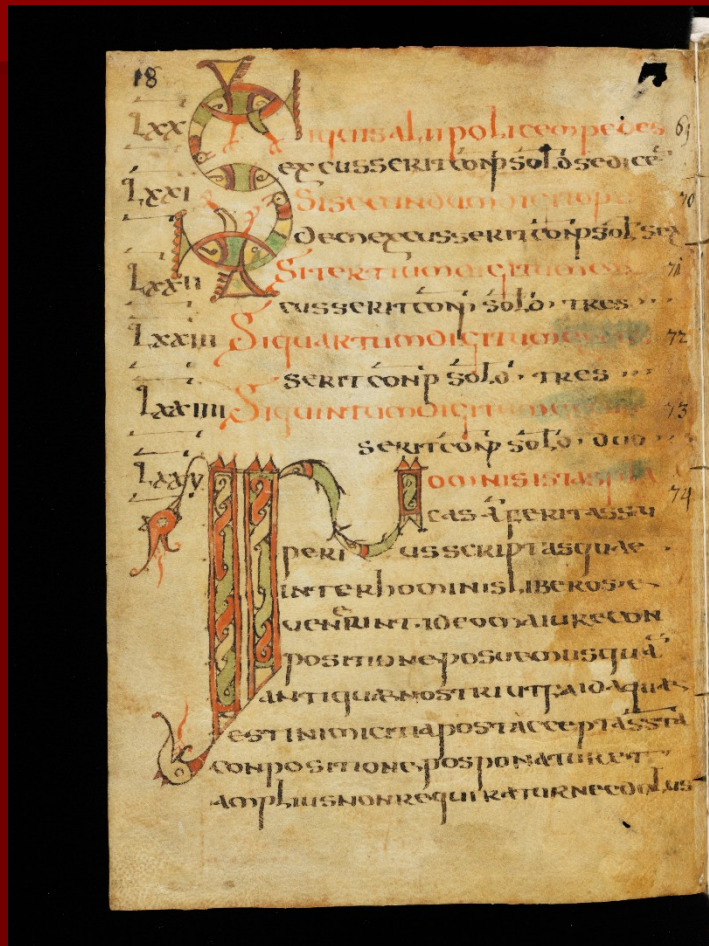 18
LXX Siquis alii policem pedes 69
excusserit conp sold sedicē
LXXI Si secundum 70
dem excusserit conp sol sex
LXXII Si tertium digitum ex 71
cusserit conp sold · tres
LXXIII Si quartum digitum 72
serit conp sold · tres
LXXIIII Si quintum digitum 73
serit conp sold · duo
LXXV In omnis istas pla 74
cas feritas su
peri us scriptas quae
inter hominis liberos e
venerint · ideo maiure con
positione posuemus quā
antiquae nostri ut faida quae
est inimicitia post accepta ssta
conpositione posponatur et
amplius non requiratur nec dolus